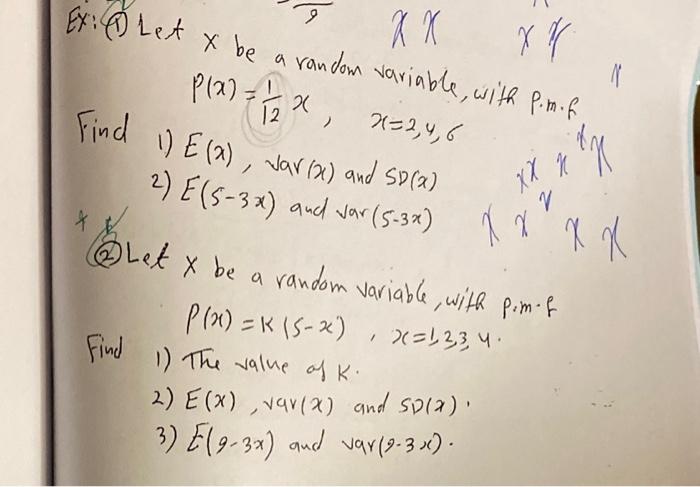 9
Ex: ① Let X be a random variable, with p.m.f
P(x) = 1/12 x , x=2,4,6
Find 1) E(x), var(x) and SD(x)
2) E(5-3x) and var(5-3x)
② Let X be a random variable, with p.m.f
P(x) = K(5-x) , x=1,2,3,4.
Find 1) The value of K.
2) E(x), var(x) and SD(x).
3) E(9-3x) and var(9-3x).